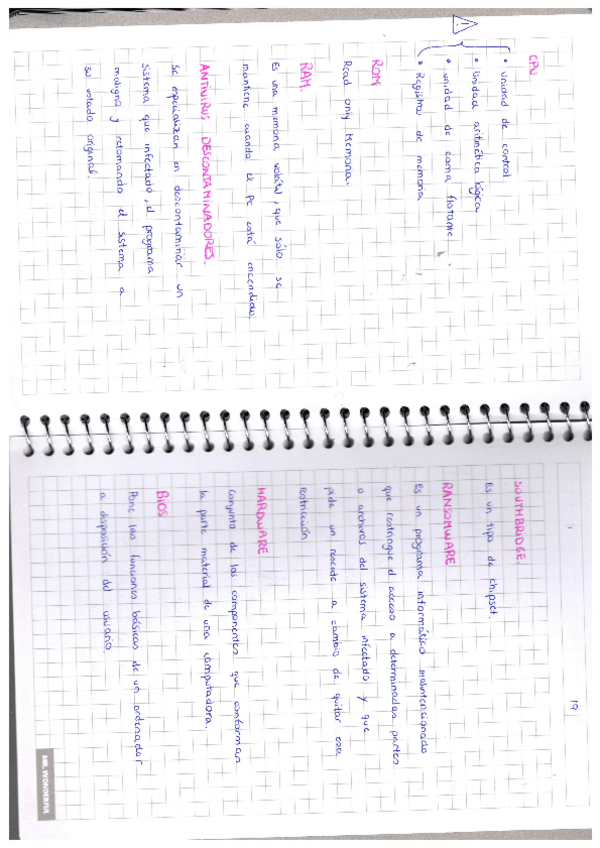 CPU
• Unidad de control
• Unidad aritmética lógica
• unidad de coma flotante
• Registros de memoria
ROM
Read only Memoria.
RAM.
Es una memoria volátil, que sólo se
mantiene cuando el Pc está encendido.
ANTIVIRUS DESCONTAMINADORES.
se especializan en descontaminar un
sistema que infectado, el programa
maligno y retomando el sistema a
su estado original.
19
SOUTHBRIDGE.
Es un tipo de chipset.
RANSOMWARE
Es un programa informático malintencionado
que restringue el acceso a determinadas partes
o archivos del sistema infectado y que
pide un rescate a cambio de quitar esa
restricción
HARDWARE
conjunto de los componentes que conforman
la parte material de una computadora.
BIOS
Pone las funciones básicas de un ordenador
a disposición del usuario.
MR. WONDERFUL